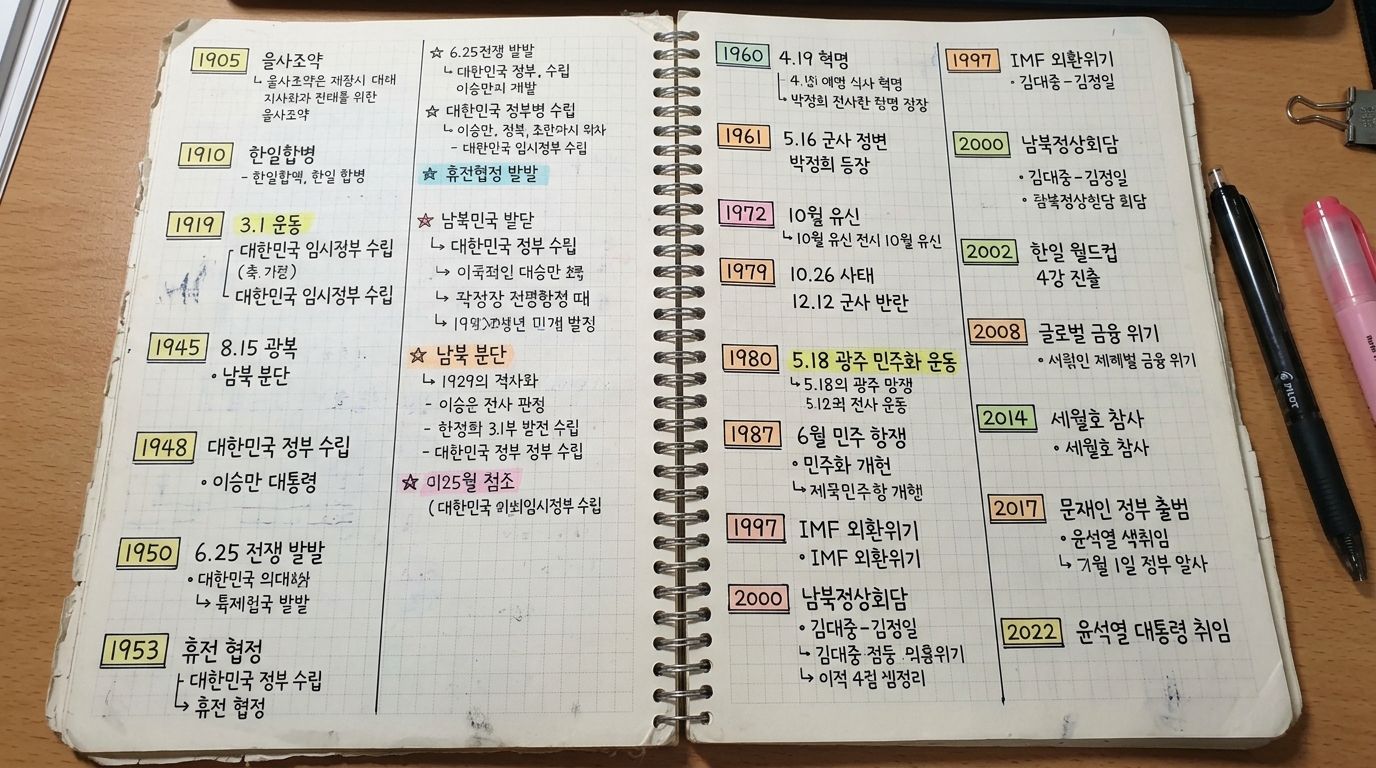 1905 을사조약
↳ 을사조약은 재장시 대해
지사롸과 전태를 위한
을사조약
1910 한일합병
- 한일합액, 한일 합병
1919 3.1 운동
대한민국 임시정부 수립
대한민국 임시정부 수립
1945 8.15 광복
• 남북 분단
1948 대한민국 정부 수립
• 이승만 대통령
1950 6.25 전쟁 발발
• 대한민국
↳ 발발
1953 휴전 협정
대한민국 정부 수립
↳ 휴전 협정
☆ 6.25전쟁 발발
↳ 대한민국 정부, 수립
이승만 개발
☆ 대한민국 정부병 수립
↳ 이승만, 정북,
- 대한민국 임시정부 수립
☆ 휴전협정 발발
☆ 남북민국 발단
↳ 대한민국 정부 수립
↳ 대승만
↳ 때
↳
☆ 남북 분단
↳ 1929의 격차화
- 이승운 전사 판정
- 한정확 3.1부 발전 수립
- 대한민국 정부 정부 수립
☆ 점조
( 대한민국 임시정부 수립
1960 4.19 혁명
혁명
↳ 박정희 전사한 정장
1961 5.16 군사 정변
박정희 등장
1972 10월 유신
↳ 10월 유신 전시 10월 유신
1979 10.26 사태
12.12 군사 반란
1980 5.18 광주 민주화 운동
↳ 5.18의 광주 망쟁
전사 운동
1987 6월 민주 항쟁
• 민주화 개헌
↳ 개헌
1997 IMF 외환위기
• IMF 외환위기
2000 남북정상회담
• 김대중-김정일
↳ 김대중 점둥
↳ 이적 4림
1997 IMF 외환위기
• 김대중-김정일
2000 남북정상회담
• 김대중-김정일
• 회담
2002 한일 월드컵
4강 진출
2008 글로벌 금융 위기
• 금융 위기
2014 세월호 참사
• 세월호 참사
2017 문재인 정부 출범
• 윤석열 색취임
↳ 7월 1일 정부 알사
2022 윤석열 대통령 취임
PILOT